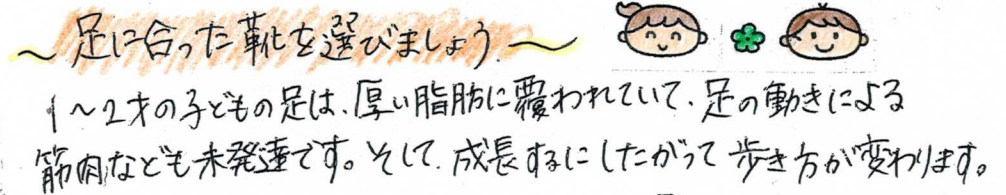 ～足に合った靴を選びましょう～
1～2才の子どもの足は、厚い脂肪に覆われていて、足の動きによる
筋肉なども未発達です。そして、成長するにしたがって歩き方が変わります。